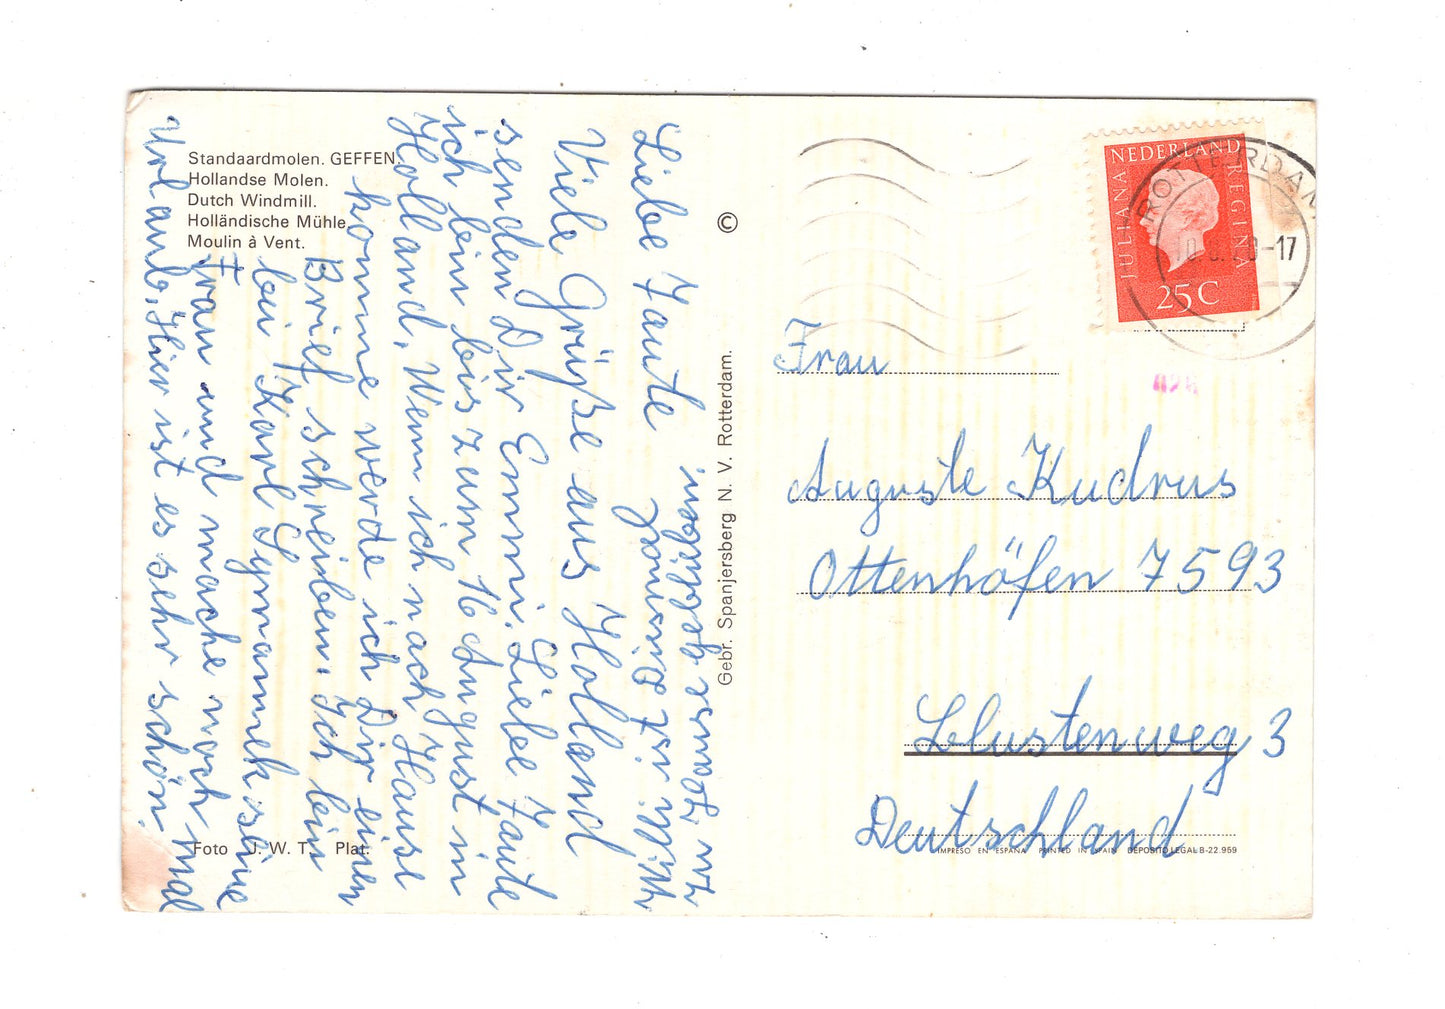 Standaardmolen. GEFFEN.
Hollandse Molen.
Dutch Windmill.
Holländische Mühle.
Moulin à Vent.
Liebe Tante
Viele Grüße aus Holland
senden Dir Emmi. Liebe Tante
ich bin bis zum 16 August in
Holland. Wenn ich nach Hause
komme werde ich Dir einen
Brief schreiben. Ich bin
bei Karl seine
Frau und mache noch mal
Urlaub. Hier ist es sehr schön.
Mir ist
zu Hause geblieben
Foto J. W. T. Plat.
©
Gebr. Spanjersberg N. V. Rotterdam.
NEDERLAND
JULIANA REGINA
25 C
ROTTERDAM
-17
Frau
Auguste Kudrus
Ottenhöfen 7593
3
Deutschland
IMPRESO EN ESPAÑA PRINTED IN SPAIN DEPOSITO LEGAL B-22.959